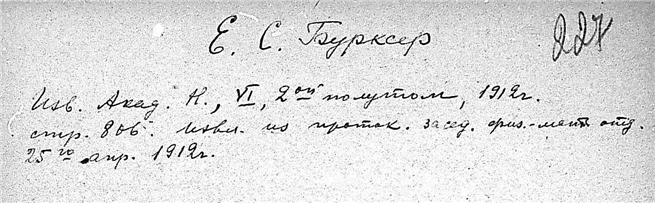 Е. С. Бурксер
227
Изв. Акад. Н., VI, 2ой полутом, 1912г.
стр. 806. извл. из проток. засед. физ.-мат. отд.
25го апр. 1912г.